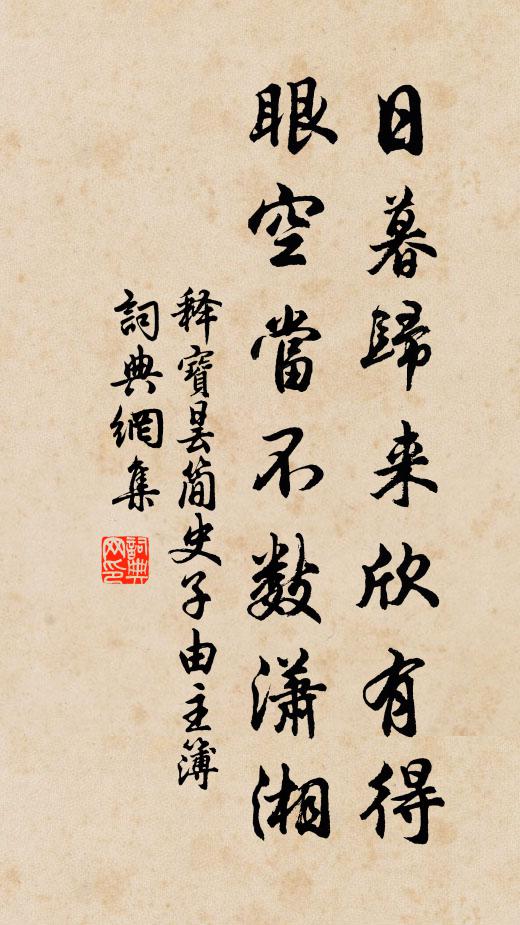 日暮歸来欣有得
眼空當不数瀟湘
釋寶曇简史子由主簿
詞典網集
詞典网印